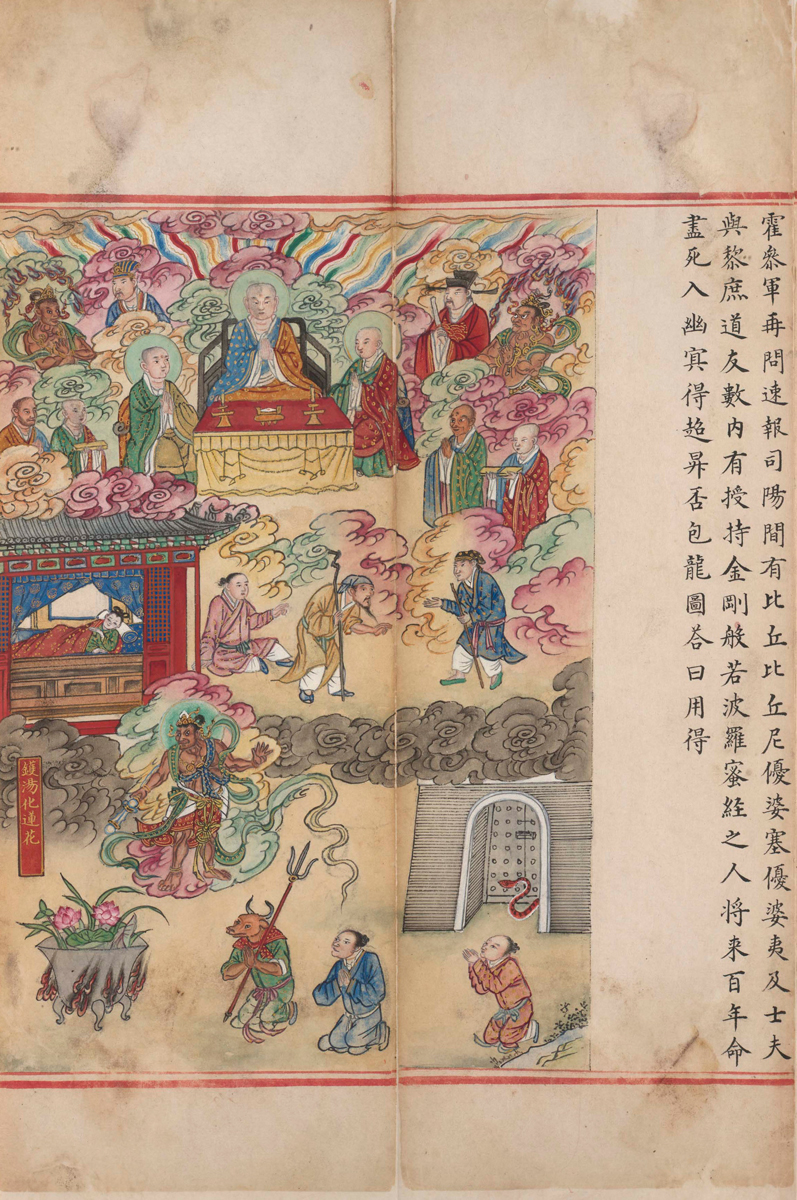 霍叅軍再問速報司陽間有比丘比丘尼優婆塞優婆夷及士夫
與黎庶道友數內有授持金剛般若波羅蜜経之人将来百年命
盡死入幽㝠得超昇否包龍圖荅曰用得
鑊湯化蓮花